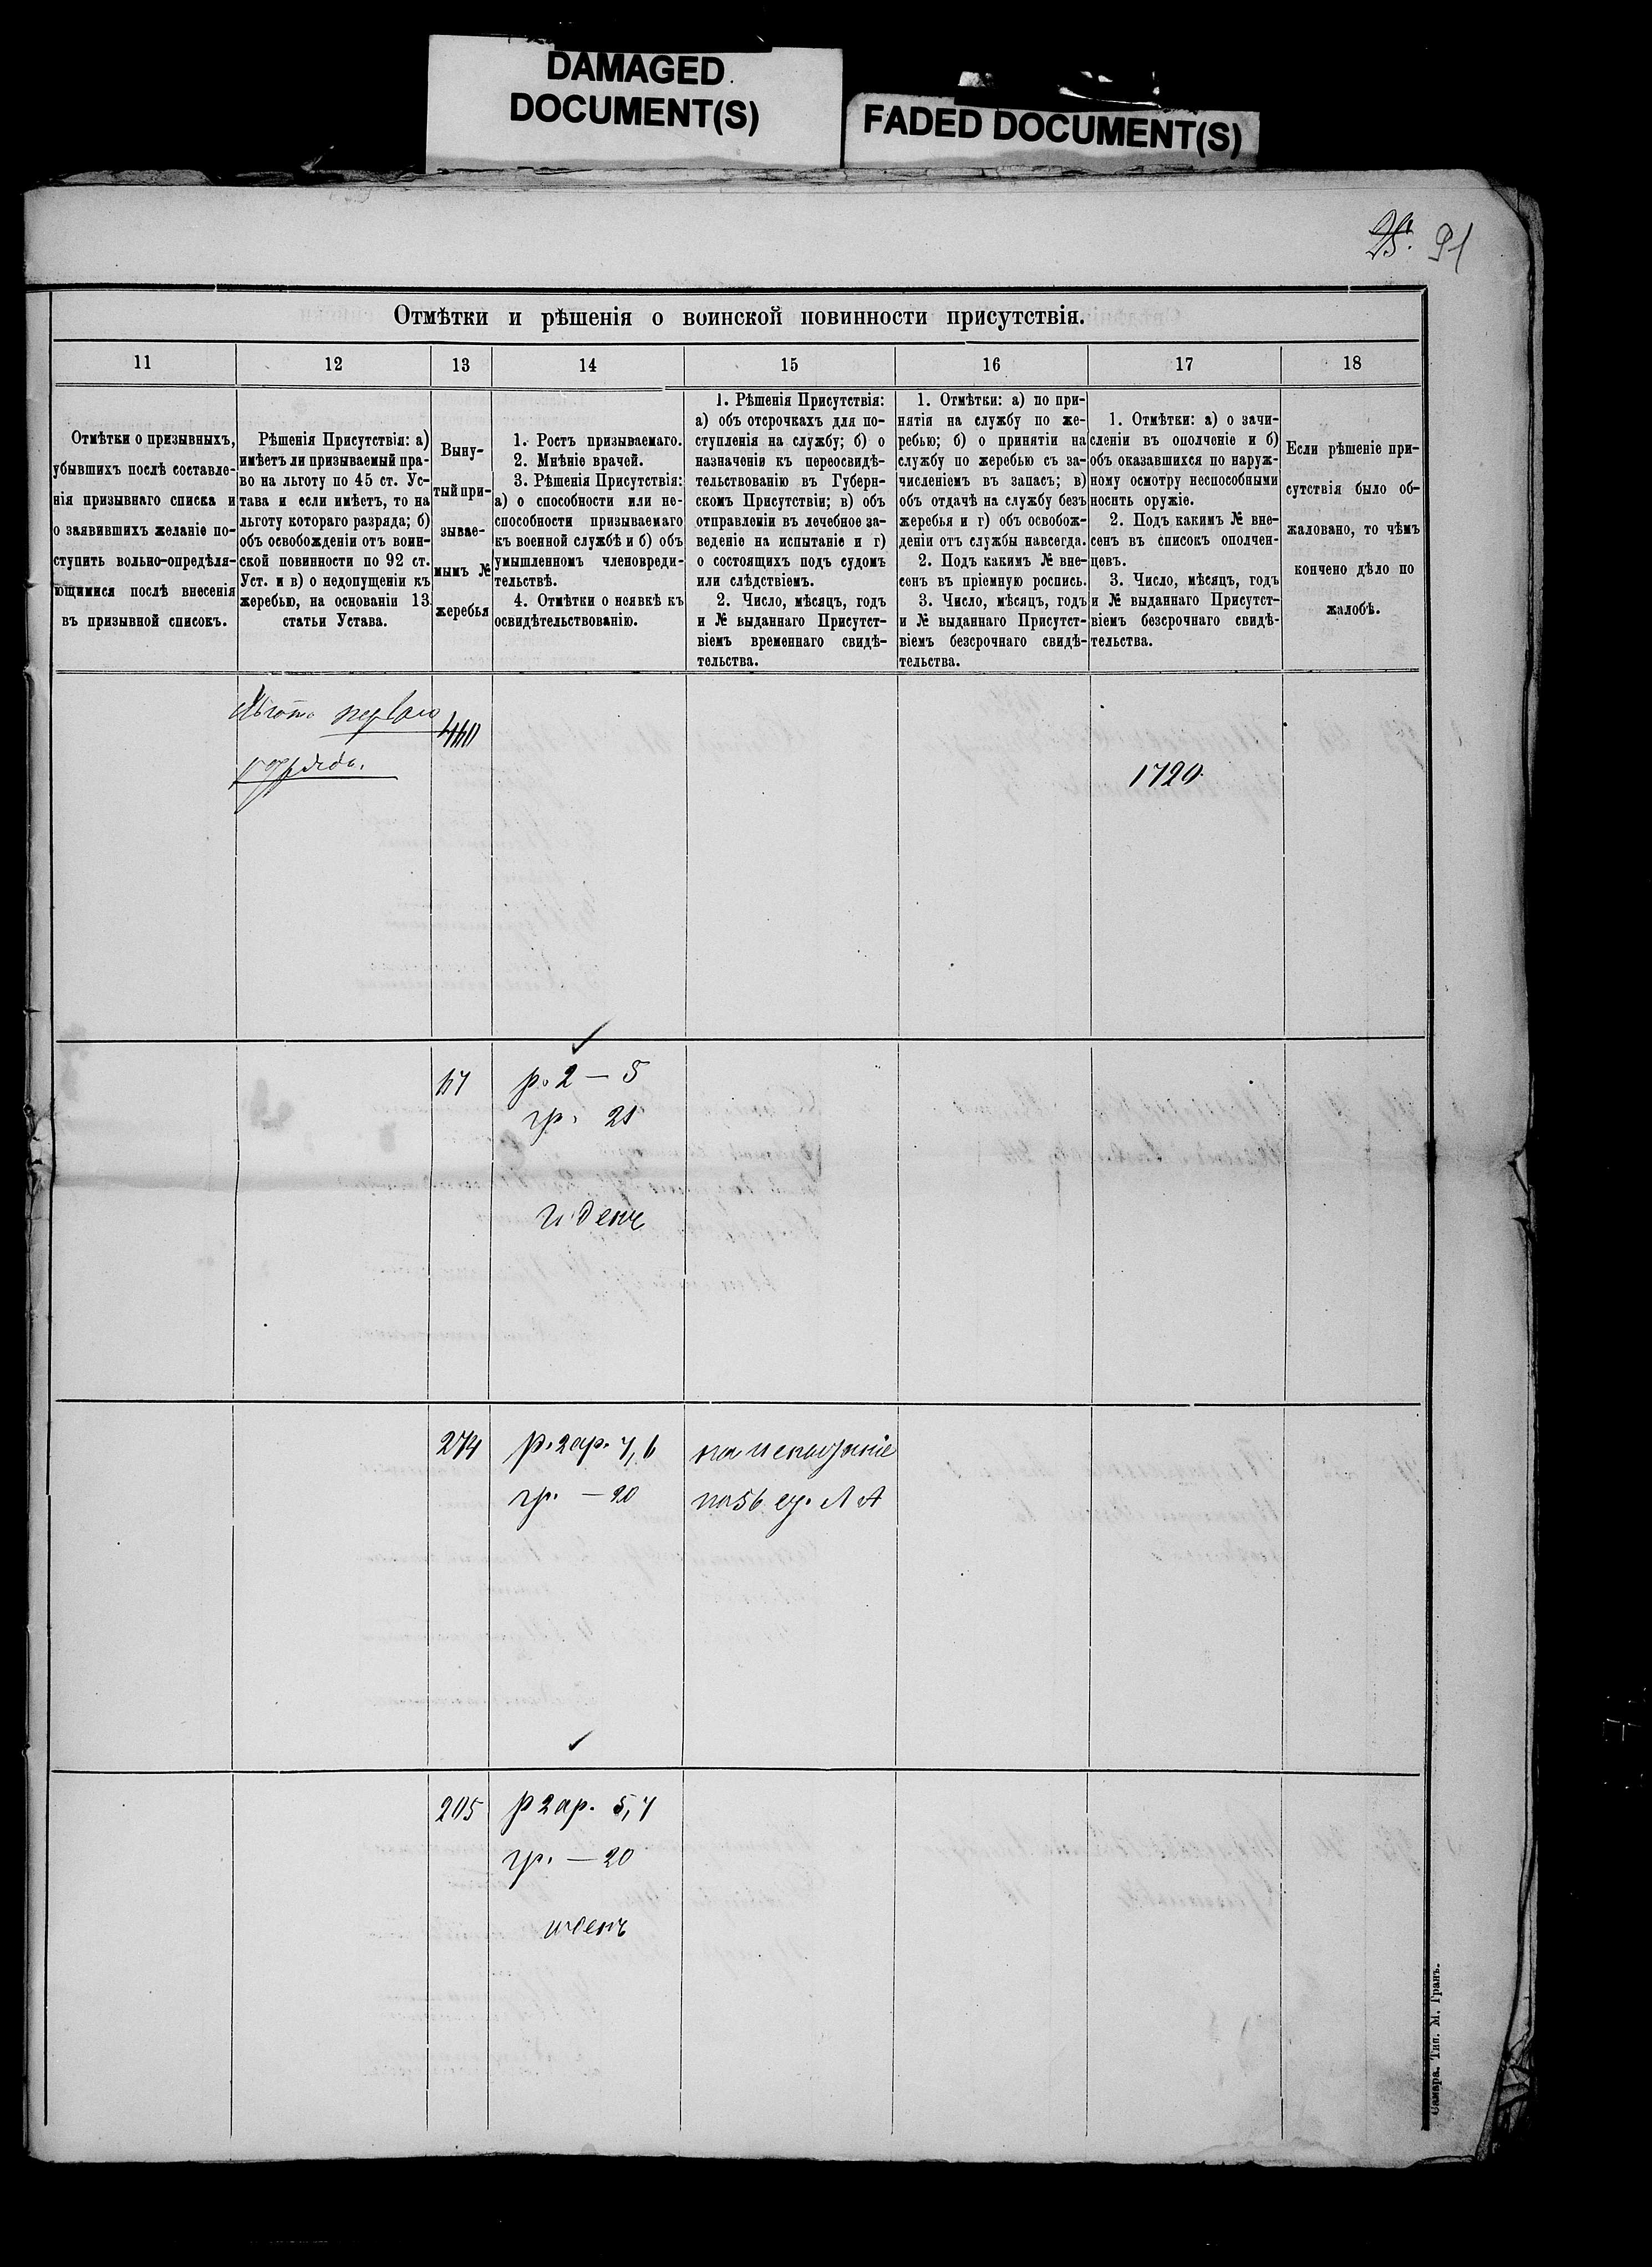 DAMAGED
DOCUMENT(S)
FADED DOCUMENT(S)
91
Отмѣтки и рѣшенія о воинской повинности присутствія.
11 12 13 14 15 16 17 18
Отмѣтки о призывныхъ,
убывшихъ послѣ составле-
нія призывнаго списка и
о заявившихъ желаніе по-
ступить вольно-опредѣля-
ющимися послѣ внесенія
въ призывной списокъ.
Рѣшенія Присутствія: а)
имѣетъ ли призываемый пра-
во на льготу по 45 ст. Ус-
тава и если имѣетъ, то на
льготу котораго разряда; б)
объ освобожденіи отъ воин-
ской повинности по 92 ст.
Уст. и в) о недопущеніи къ
жеребью, на основаніи 13
статьи Устава.
Выну-
тый при-
зывае-
мымъ №
жеребья
1. Ростъ призываемаго.
2. Мнѣніе врачей.
3. Рѣшенія Присутствія:
а) о способности или не-
способности призываемаго
къ военной службѣ и б) объ
умышленномъ членовреди-
тельствѣ.
4. Отмѣтки о неявкѣ къ
освидѣтельствованію.
1. Рѣшенія Присутствія:
а) объ отсрочкахъ для по-
ступленія на службу; б) о
назначеніи къ переосвидѣ-
тельствованію въ Губерн-
скомъ Присутствіи; в) объ
отправленіи въ лечебное за-
веденіе на испытаніе и г)
о состоящихъ подъ судомъ
или слѣдствіемъ.
2. Число, мѣсяцъ, годъ
и № выданнаго Присутст-
віемъ временнаго свидѣ-
тельства.
1. Отмѣтки: а) по при-
нятія на службу по же-
ребью; б) о принятіи на
службу по жеребью съ за-
численіемъ въ запасъ; в)
объ отдачѣ на службу безъ
жеребья и г) объ освобож-
деніи отъ службы навсегда.
2. Подъ какимъ № вне-
сенъ въ пріемную роспись.
3. Число, мѣсяцъ, годъ
и № выданнаго Присутст-
віемъ безсрочнаго свидѣ-
тельства.
1. Отмѣтки: а) о зачи-
сленіи въ ополченіе и б)
объ оказавшихся по наруж-
ному осмотру неспособными
носить оружіе.
2. Подъ какимъ № вне-
сенъ въ списокъ ополчен-
цевъ.
3. Число, мѣсяцъ, годъ
и № выданнаго Присутст-
віемъ безсрочнаго свидѣ-
тельства.
Если рѣшеніе при-
сутствія было об-
жаловано, то чѣмъ
кончено дѣло по
жалобѣ.
Льгота перваго
разряда.
440
1720
р. 2 — 5
гр. 21
годенъ
274
р. 2 ар. 4, 6
гр. — 20
на испытаніе
по 56 ст. Л А
205
р 2 ар. 5, 4
гр. — 20
годенъ
Самара. Тип. М. Гранъ.